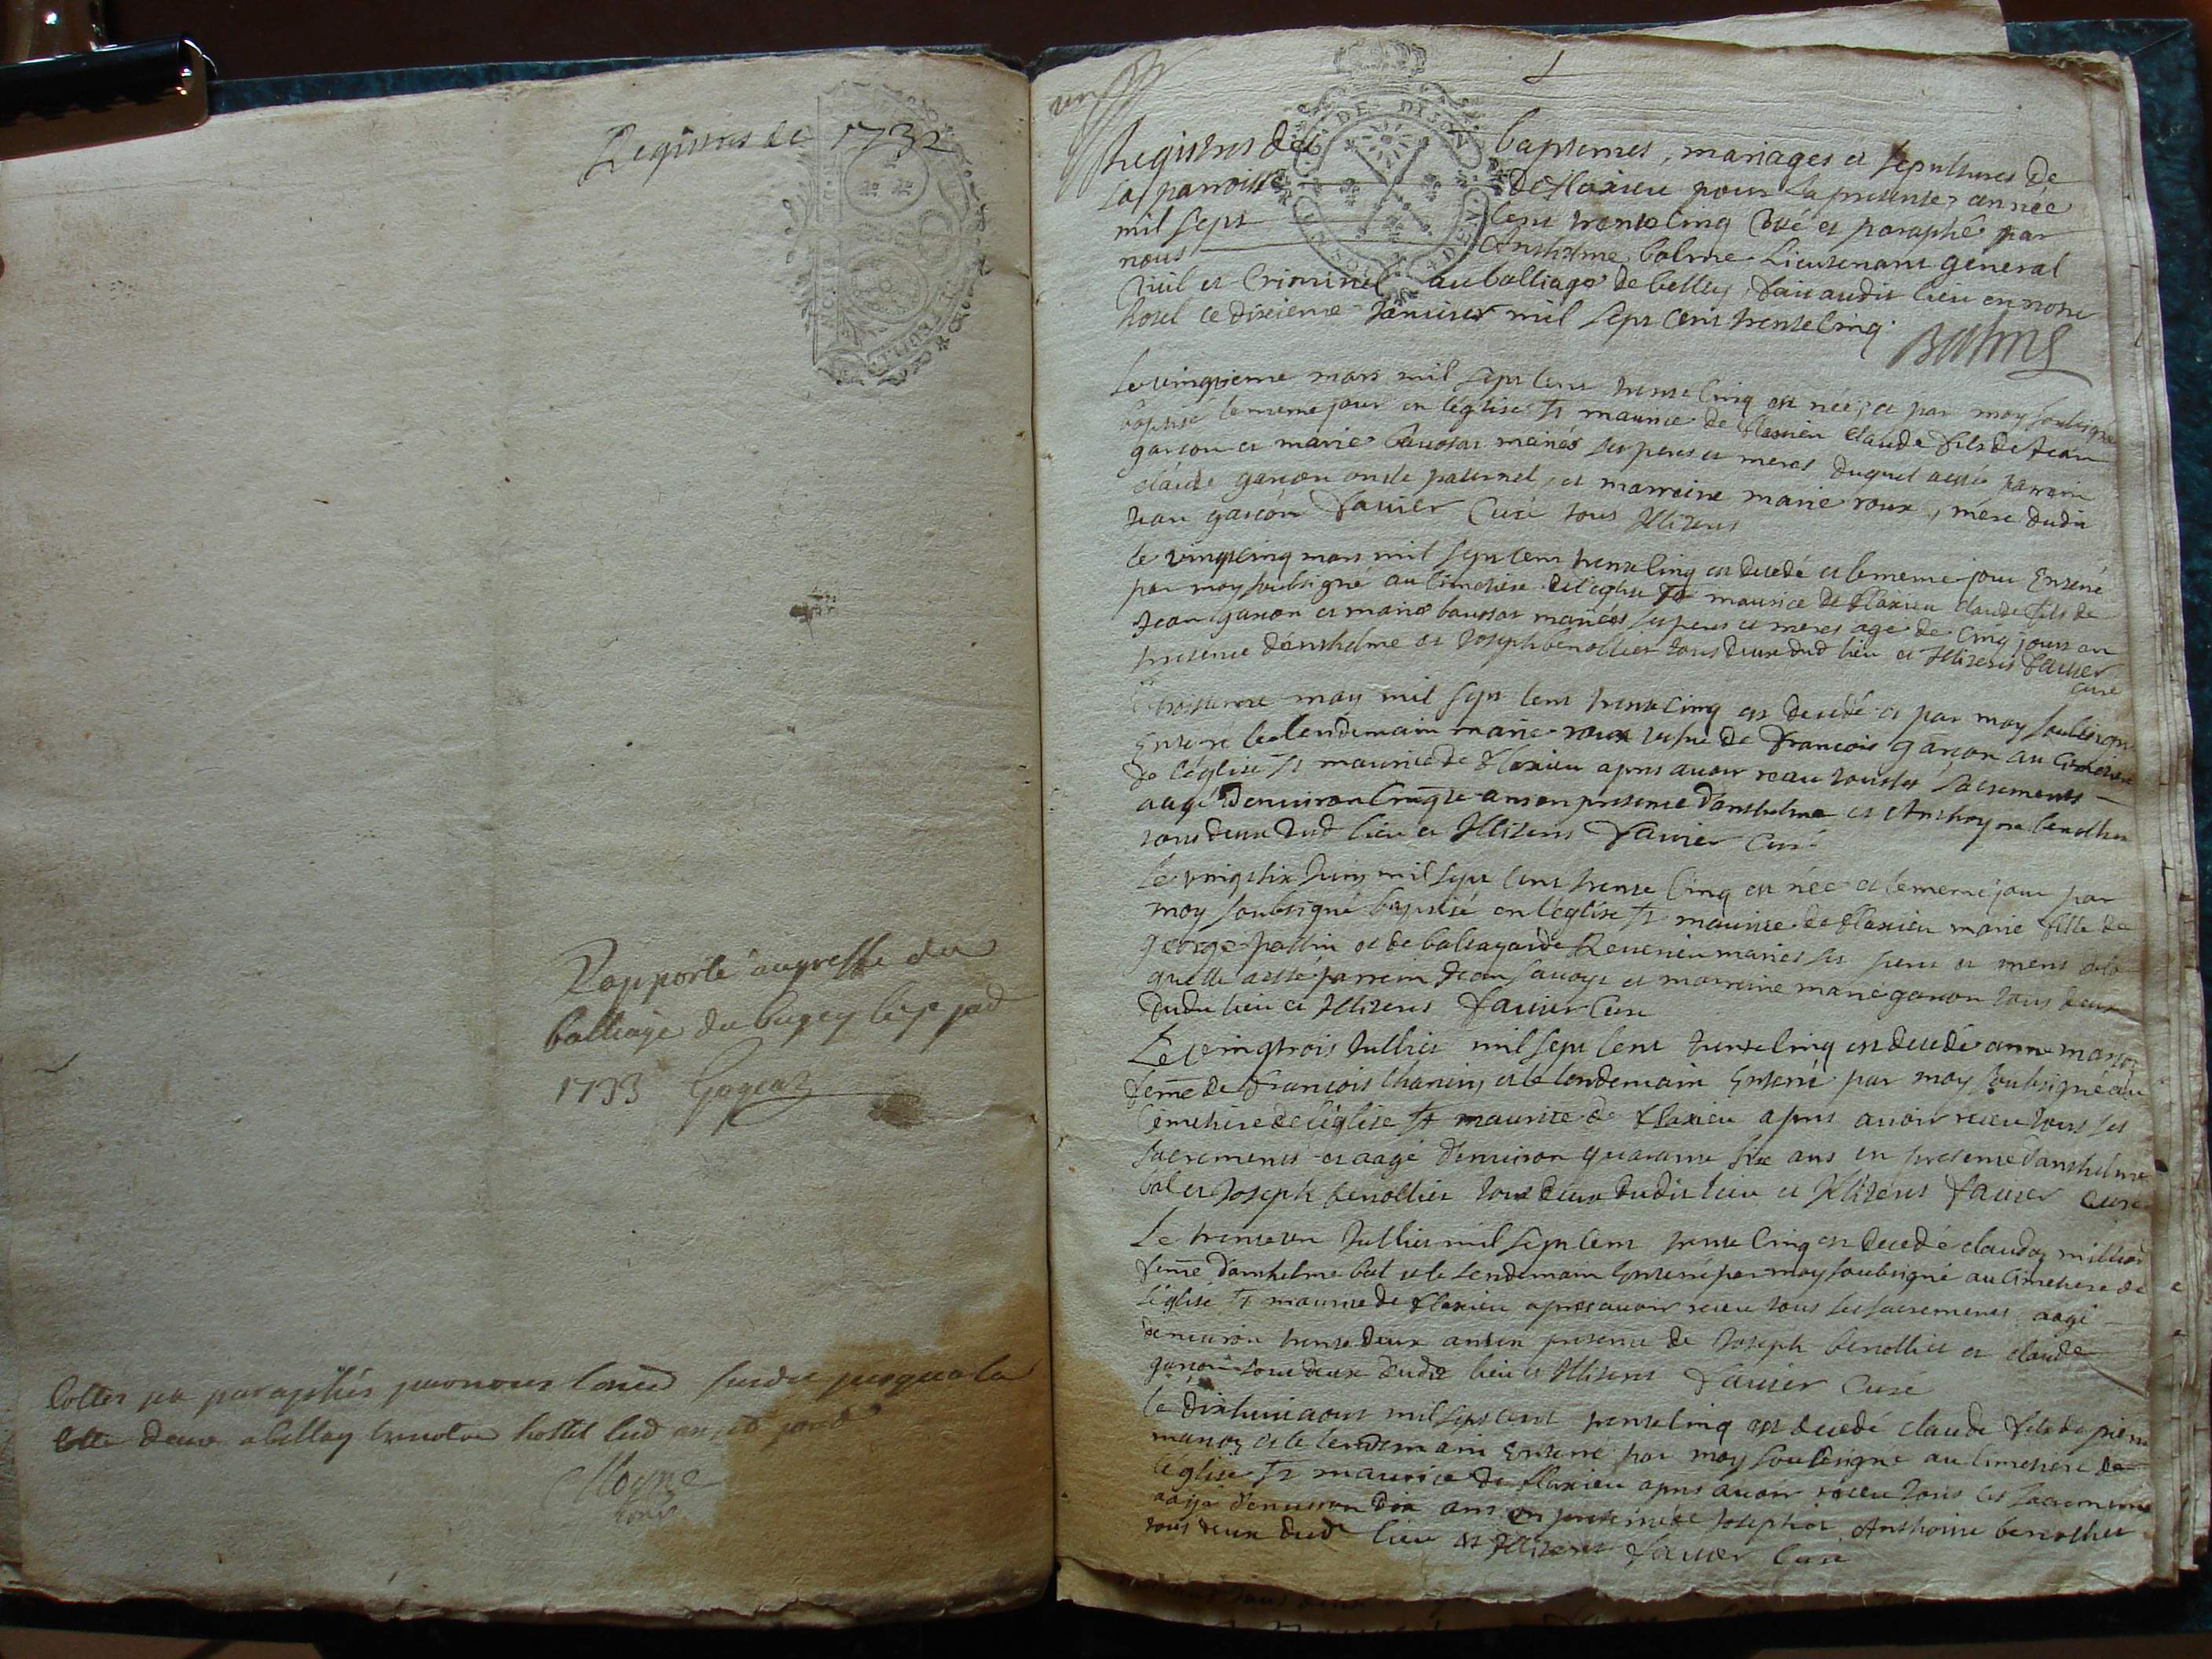 Registres de 1732
Rapporté au greffe du
balliage du bugey le
1733
Cottes et paraphés par nous
deux a belley hostel
un
Registres des baptemes, mariages et sepultures de
la parroisse de flaxieu pour la presente année
mil sept cent trente cinq coté et paraphé par
nous Anthelme balme Lieutenant general
Civil et Criminel au balliage de belley, fait audit lieu en notre
hotel ce dixieme Janvier mil sept cent trente cinq.
Balme
Le vingtieme mars mil sept cent trente cinq est née, et par moy soubsigné
baptisé le meme jour en l'église St maurice de flaxieu claude fils de Jean
garçon et marie baussat mariés ses peres et meres duquel a esté parrein
claude garçon oncle paternel, et marreine marie roux, mère dudit
Jean garçon favier Curé tous Illiterés
le vingt cinq mars mil sept cent trente cinq est decedé et le meme jour Enterré
par moy soubsigné au Cimetiere de l'eglise St maurice de flaxieu claude fils de
Jean garçon et marie baussat mariés ses peres et meres agé de cinq jours en
presence d'anthelme et Joseph benollier tous deux dud lieu et Illiterés favier
curé
troisieme may mil sept cent trente cinq est decedé et par moy soubsigné
Enterré le lendemain marie roux vefve de francois garçon au Cimetiere
de l'église St maurice de flaxieu apres avoir receu tous les sacrements
aagé d'environ ans en presence d'anthelme et Anthoyne benollier
tous deux dud lieu et Illiterés favier Curé
Le vingt six Juin mil sept cent trente cinq est née et le meme jour par
moy soubsigné baptisé en l'église St maurice de flaxieu marie fille de
george et de mariés ses peres et meres de la
quelle a esté parrein Jean savoye et marreine marie garçon tous deux
dudit lieu et Illiterés favier Curé
Le vingt trois Julliet mil sept cent trente cinq est decedé anne
feme de francois et le lendemain Enterré par moy soubsigné au
Cimetiere de l'église St maurice de flaxieu apres avoir receu tous les
sacrements et aagé d'environ quarante six ans en presence d'anthelme
bal et Joseph benollier tous deux dudit lieu et Illiterés favier curé
Le trente un Jullier mil sept cent trente cinq est decedé claudaz
feme d'anthelme bal et le lendemain Enterré par moy soubsigné au Cimetiere de
l'église St maurice de flaxieu apres avoir receu tous les sacrements aagé
d'environ trente deux ans en presence de Joseph benollier et claude
garçon tous deux dudit lieu et Illiterés favier Curé
le dix huit aout mil sept cent trente cinq est decedé claude fils de pierre
et le lendemain Enterré par moy soubsigné au Cimetiere de
l'église St maurice de flaxieu apres avoir receu tous les sacrements
aagé d'environ dix ans en presence de Joseph et Anthoine benollier
tous deux dud lieu et Illiterés favier Curé